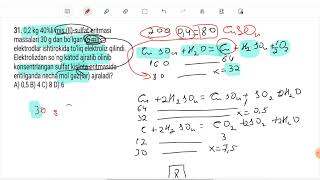 31. 0,2 kg 40% li mis (II)-sulfat eritmasi
massalari 30 g dan bo'lgan
elektrodlar ishtirokida to'liq elektroliz qilindi.
Elektrolizdan so'ng katod ajratib olinib
konsentrlangan sulfat kislota eritmasida
eritilganda necha mol gaz(lar) ajraladi?
A) 0,5 B) 4 C) 8 D) 6
200 0,4 = 80 CuSO4
CuSO4 + H2O = Cu + H2SO4 + O2
160 64
80 x = 32
Cu + 2H2SO4 = CuSO4 + SO2 + 2H2O
64
32 x = 0,5
C + 2H2SO4 = CO2 + 2SO2 + 2H2O
12 3
30 x = 7,5
30 g
8